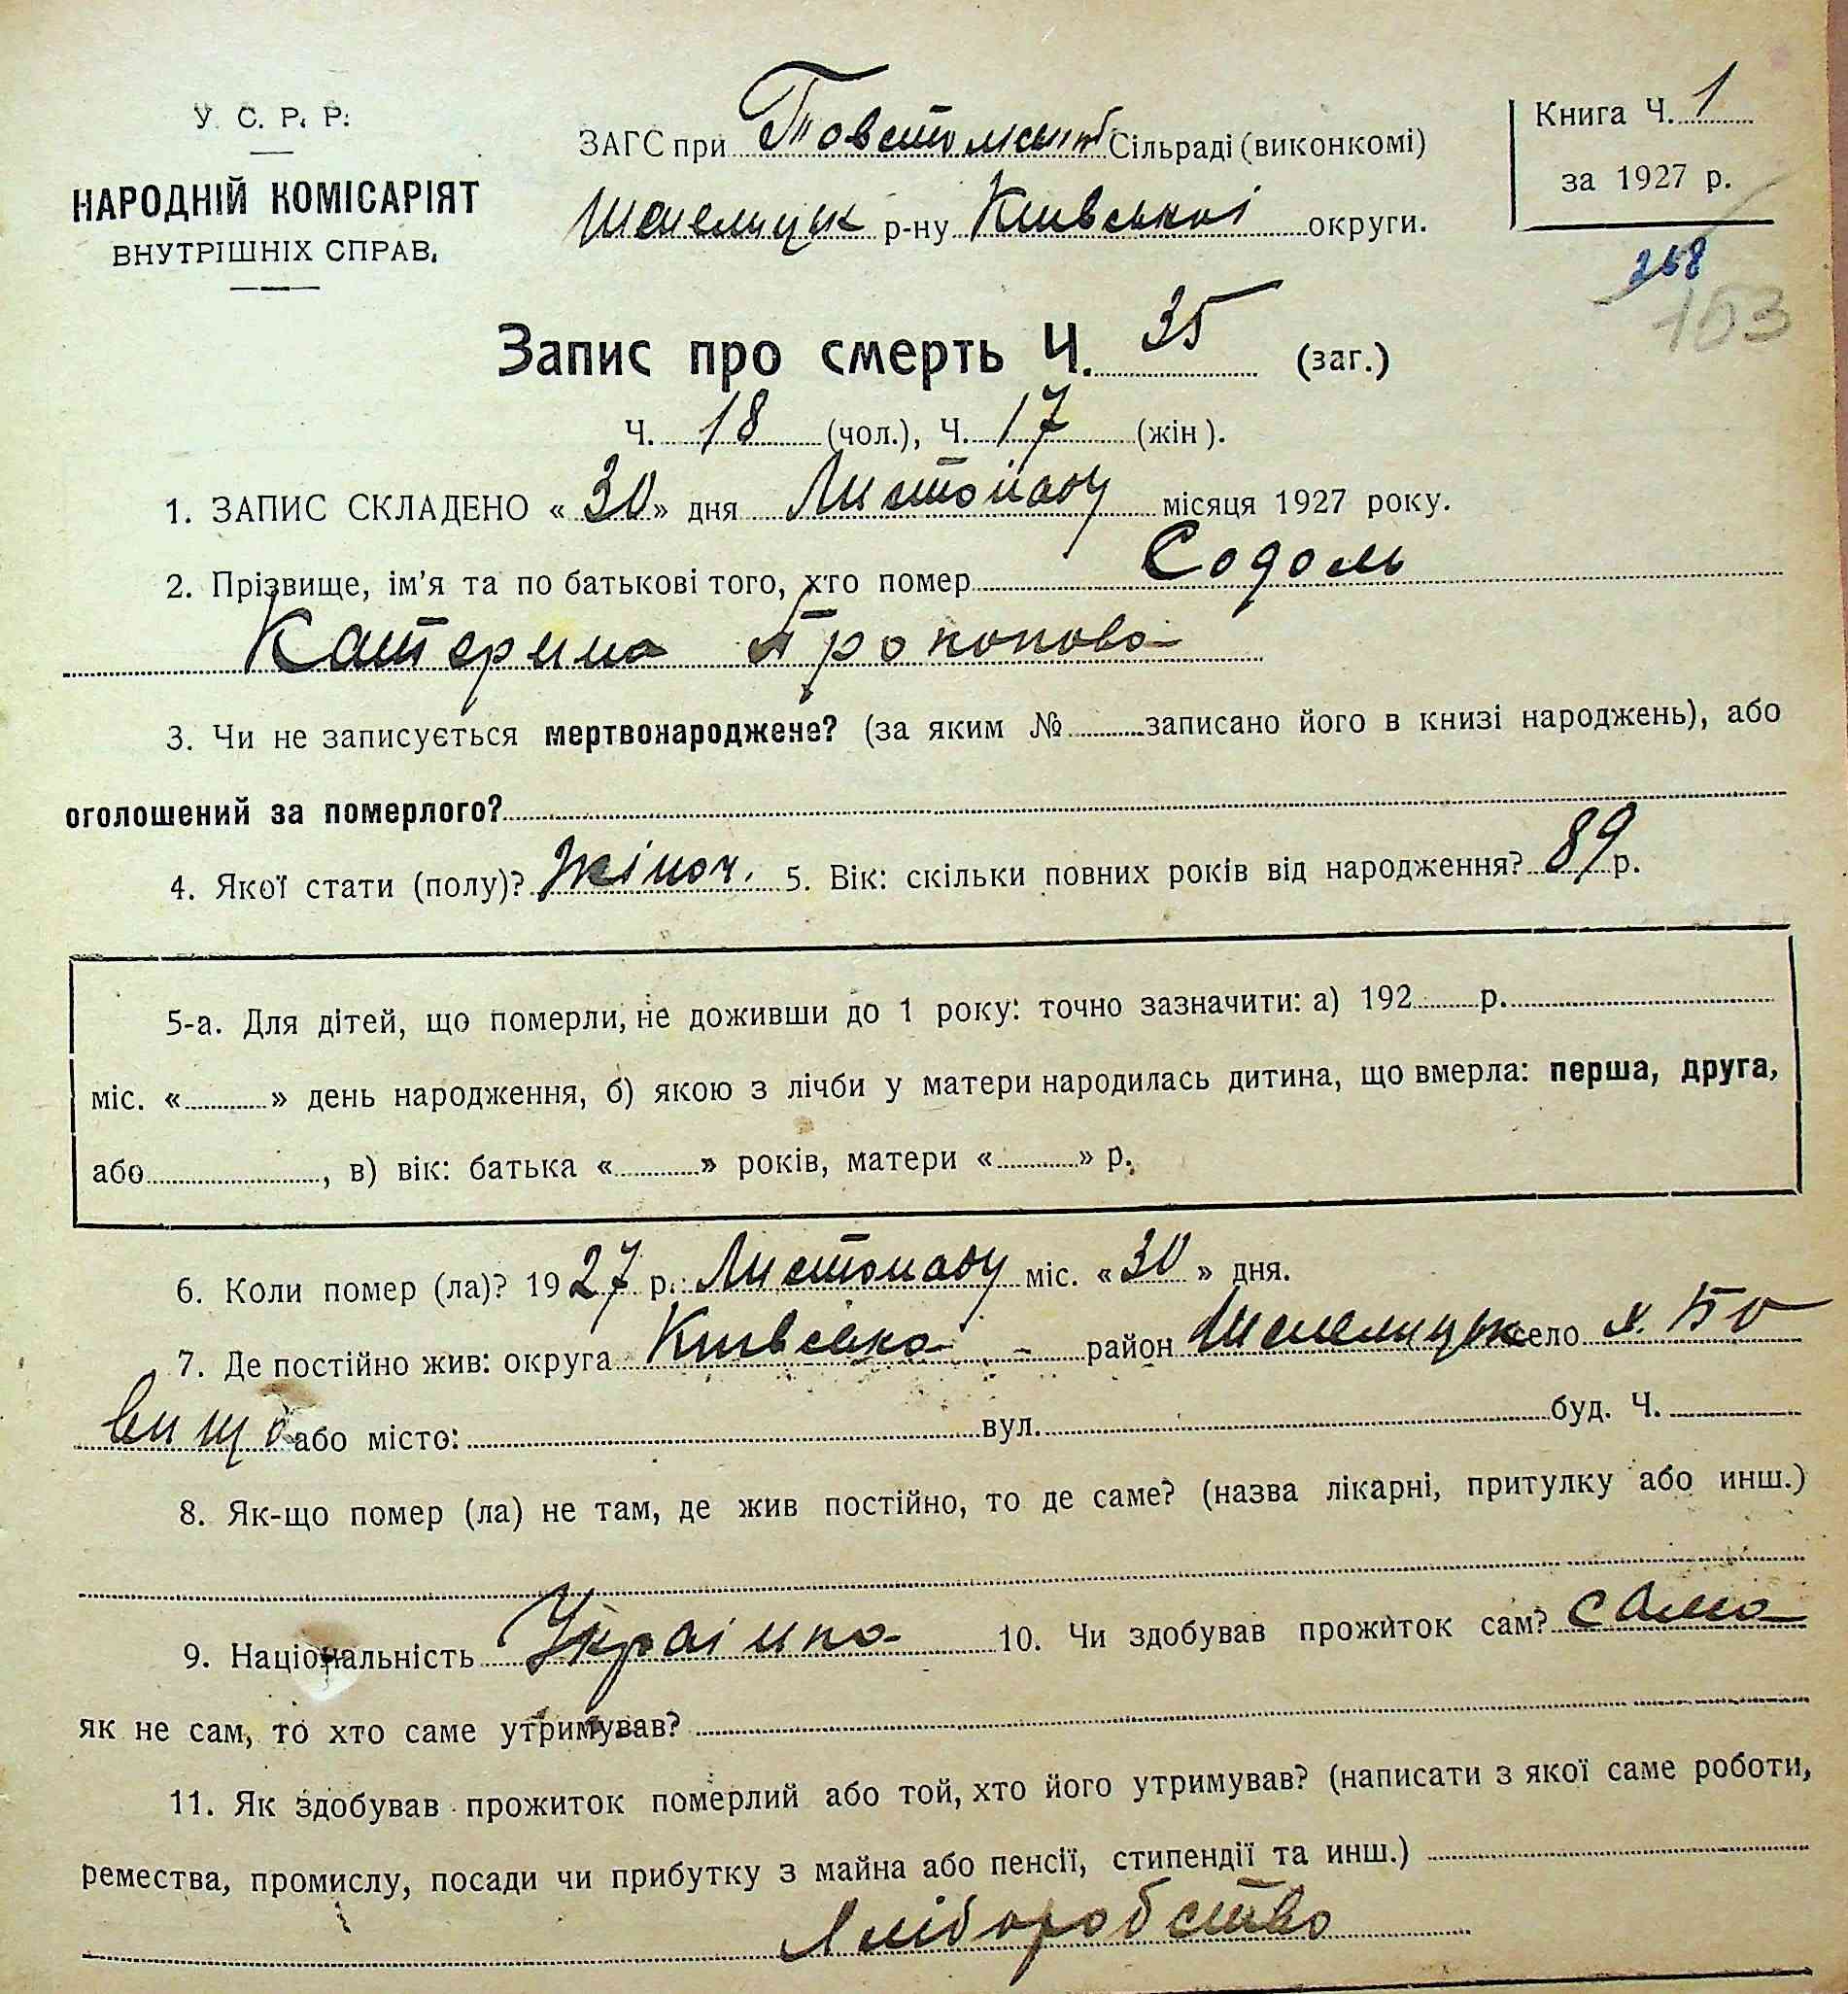 У. С. Р. Р.
НАРОДНІЙ КОМІСАРІЯТ
ВНУТРІШНІХ СПРАВ.
ЗАГС при Сільраді (виконкомі)
р-ну Київської округи.
Книга Ч. 1
за 1927 р.
258
153
Запис про смерть Ч. 35 (заг.)
Ч. 18 (чол.), Ч. 17 (жін).
1. ЗАПИС СКЛАДЕНО « 30 » дня Листопаду місяця 1927 року.
2. Прізвище, ім'я та по батькові того, хто помер Содоль
Катерина Прокопова
3. Чи не записується мертвонароджене? (за яким № записано його в книзі народжень), або
оголошений за померлого?
4. Якої стати (полу)? жіноч. 5. Вік: скільки повних років від народження? 89 р.
5-а. Для дітей, що померли, не доживши до 1 року: точно зазначити: а) 192 р.
міс. « » день народження, б) якою з лічби у матери народилась дитина, що вмерла: перша, друга,
або , в) вік: батька « » років, матери « » р.
6. Коли помер (ла)? 1927 р. Листопаду міс. « 30 » дня.
7. Де постійно жив: округа Київська район село
або місто: вул. буд. Ч.
8. Як-що помер (ла) не там, де жив постійно, то де саме? (назва лікарні, притулку або инш.)
9. Національність Українка 10. Чи здобував прожиток сам? сама
як не сам, то хто саме утримував?
11. Як здобував прожиток померлий або той, хто його утримував? (написати з якої саме роботи,
ремества, промислу, посади чи прибутку з майна або пенсії, стипендії та инш.)
Хліборобство